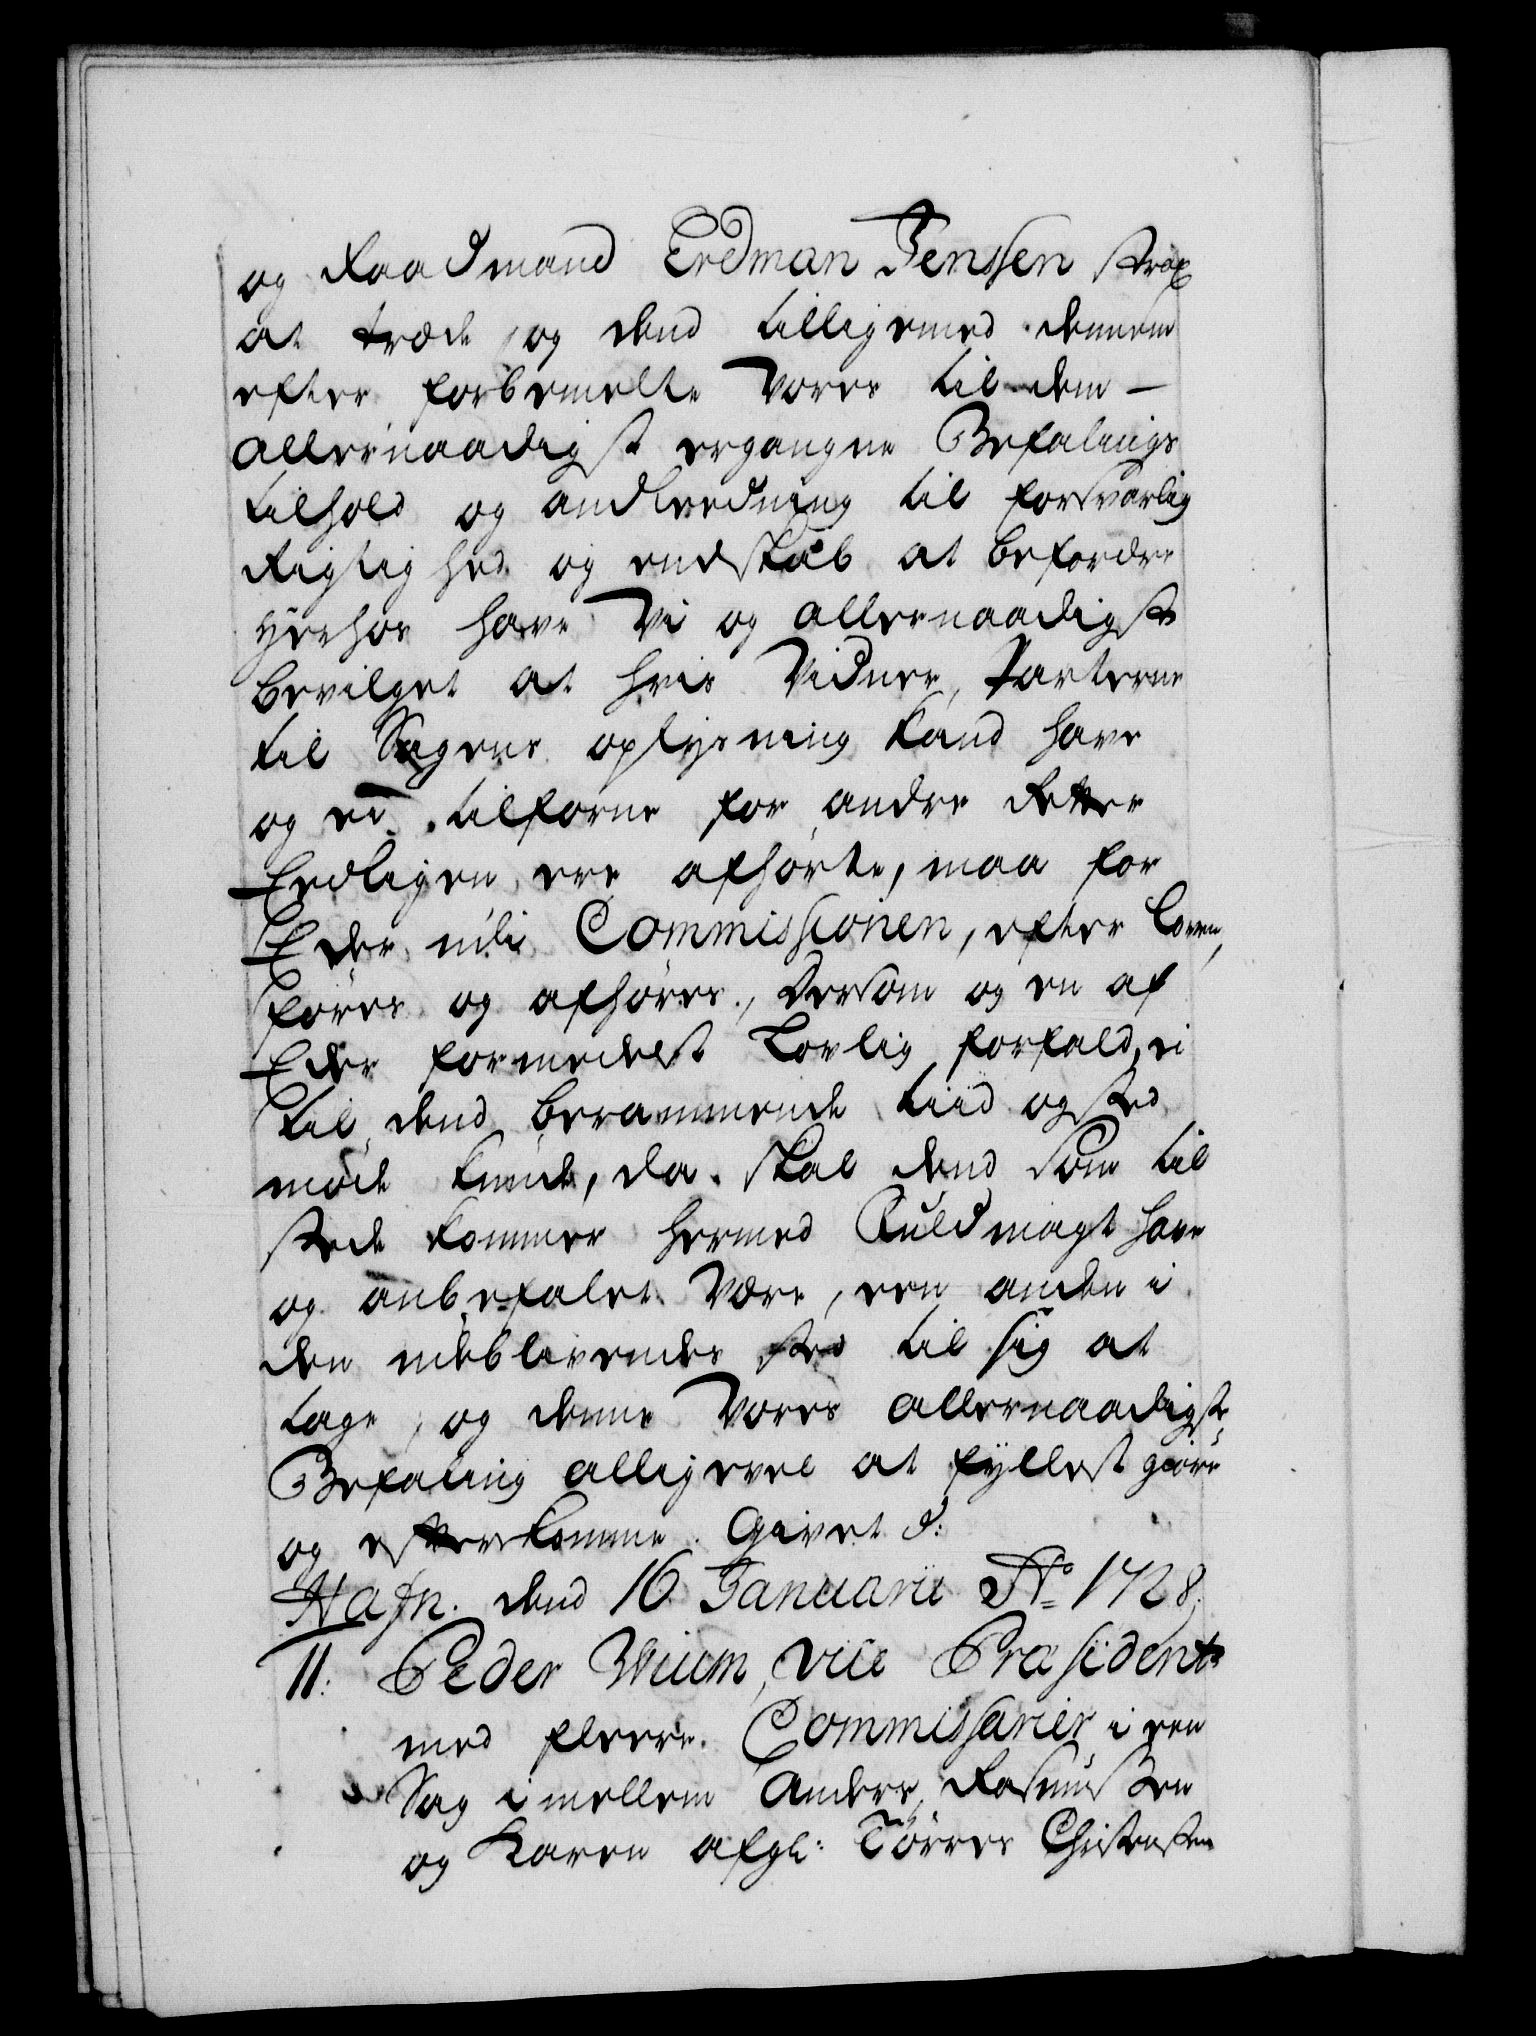 og Raadmand Erdman Jenssen strax
at træde, og dend tilligemed dennem
efter forbemelte Vores til dem
allernaadigst ergangne Befalings
tilhold og andleedning til forsvarlig
Rigtighed og endskab at befordre
hverhos have Vi og allernaadigst
bevilget at hvis Vidner, Parterne
til Sagens oplysning kand have
og ei tilforne for andre Retter
Eedligen ere afhørte, maa for
Eder udi Commissionen, efter loven,
føres og afhøres, Dersom og en af
Eder formedelst Lovlig forfald, ei
til dend berammende tiid og sted
møde kunde, da skal dend som til
stede kommer hermed Fuldmagt have
og anbefalet være, een anden i
den udeblivendes sted til sig at
tage, og denne Vores allernaadigste
Befaling alligevel at fyllest giøre
og efterkomme. Givet d:
Hafn. dend 16 Januarii Ao 1728.
11: Peder Wium, vice Præsident
med fleere Commissarier i een
Sag imellem Anders Rasmussen
og Karen afgl: Tørres Christensen